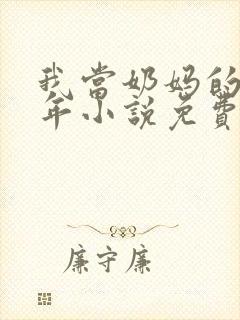 我当奶妈的
年小说免费
廉守廉